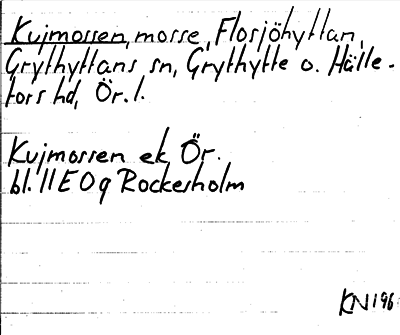 Kujmossen, mosse, Flosjöhyttan,
Grythyttans sn, Grythytte o. Hälle-
fors hd, Ör. l.
Kujmossen ek Ör.
bl. 11E0g Rockesholm
KN 196